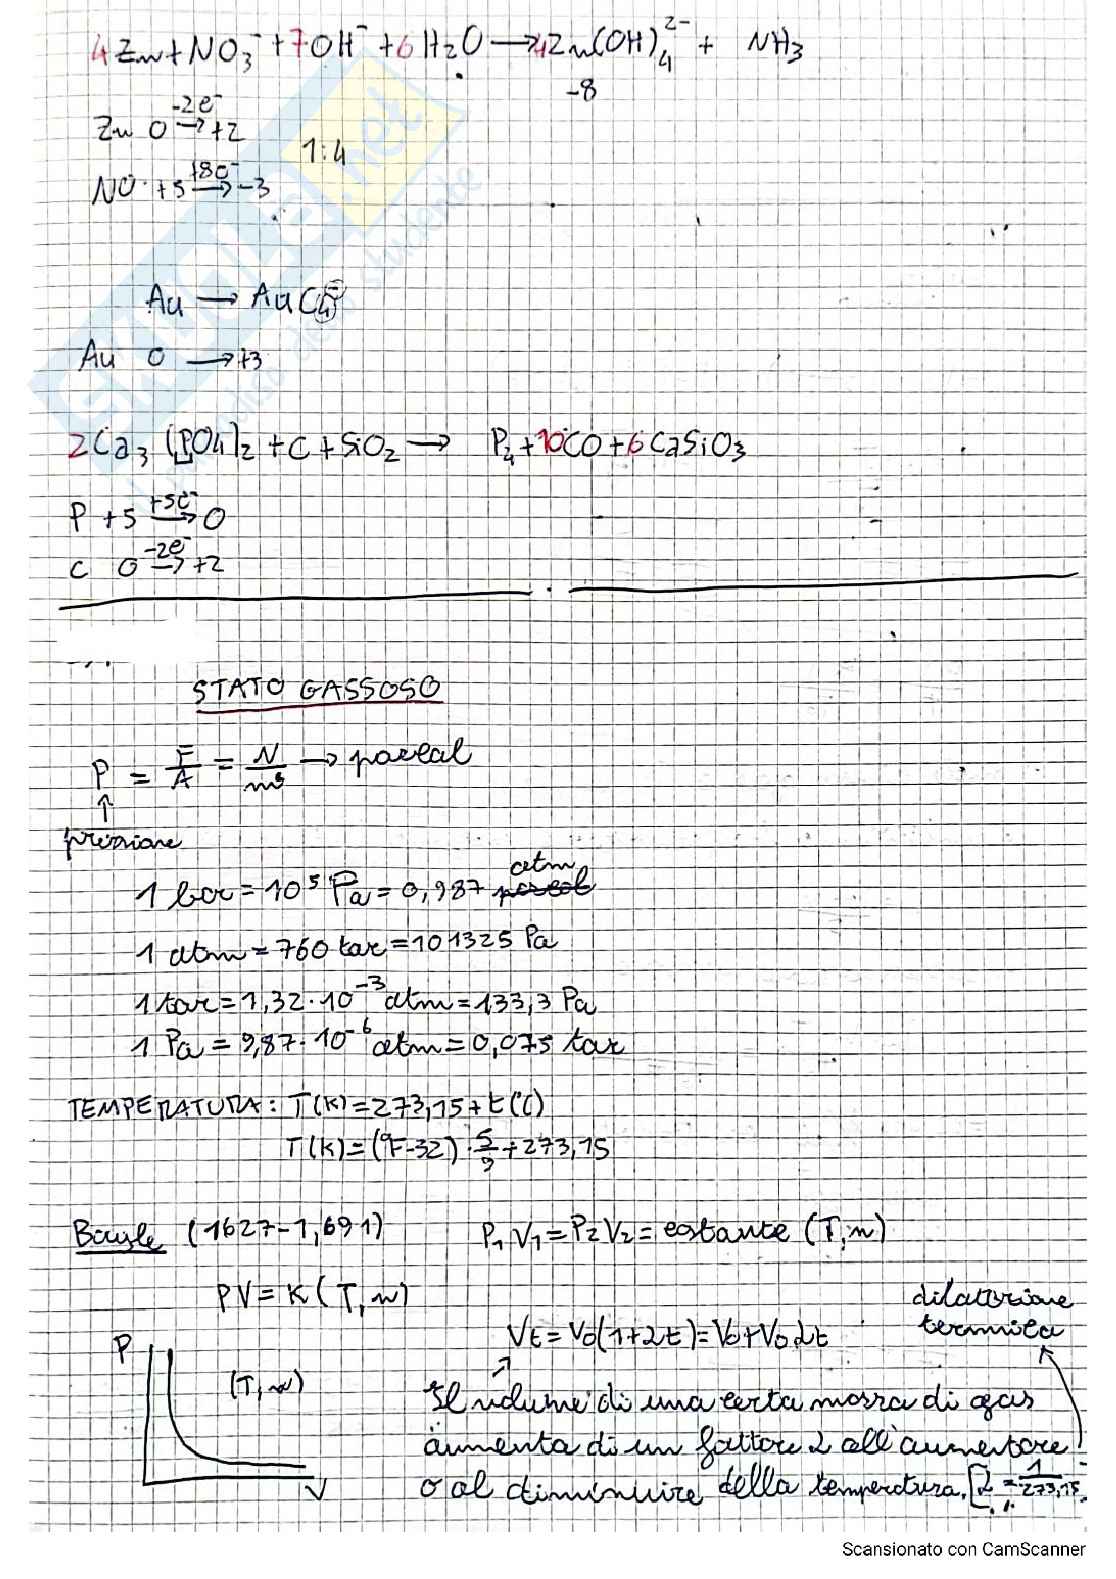 4Zn + NO3⁻ + 7OH⁻ + 6H2O → 4Zn(OH)4²⁻ + NH3
-8
Zn 0 -2e⁻→ +2
1:4
NO +5 +8e⁻→ -3
Au → AuCl4⁻
Au 0 → +3
2Ca3(PO4)2 + C + SiO2 → P4 + 10CO + 6CaSiO3
P +5 +5e⁻→ 0
C 0 -2e⁻→ +2
STATO GASSOSO
P = F/A = N/m² → pascal
↑
pressione
1 bar = 10⁵ Pa = 0,987 atm
1 atm = 760 tor = 101325 Pa
1 tor = 1,32·10⁻³ atm = 133,3 Pa
1 Pa = 9,87·10⁻⁶ atm = 0,075 tor
TEMPERATURA: T(K) = 273,15 + t(°C)
T(K) = (°F-32)·5/9 + 273,15
Boyle (1627-1,691) P1V1 = P2V2 = costante (T,n)
PV = K (T,n)
dilatazione
termica
Vt = V0(1+αt) = V0+V0αt
P
(T,n)
V
Il volume di una certa massa di gas
aumenta di un fattore α all'aumentare
o al diminuire della temperatura. [α = 1/273,15
Scansionato con CamScanner
SKUOLA.net